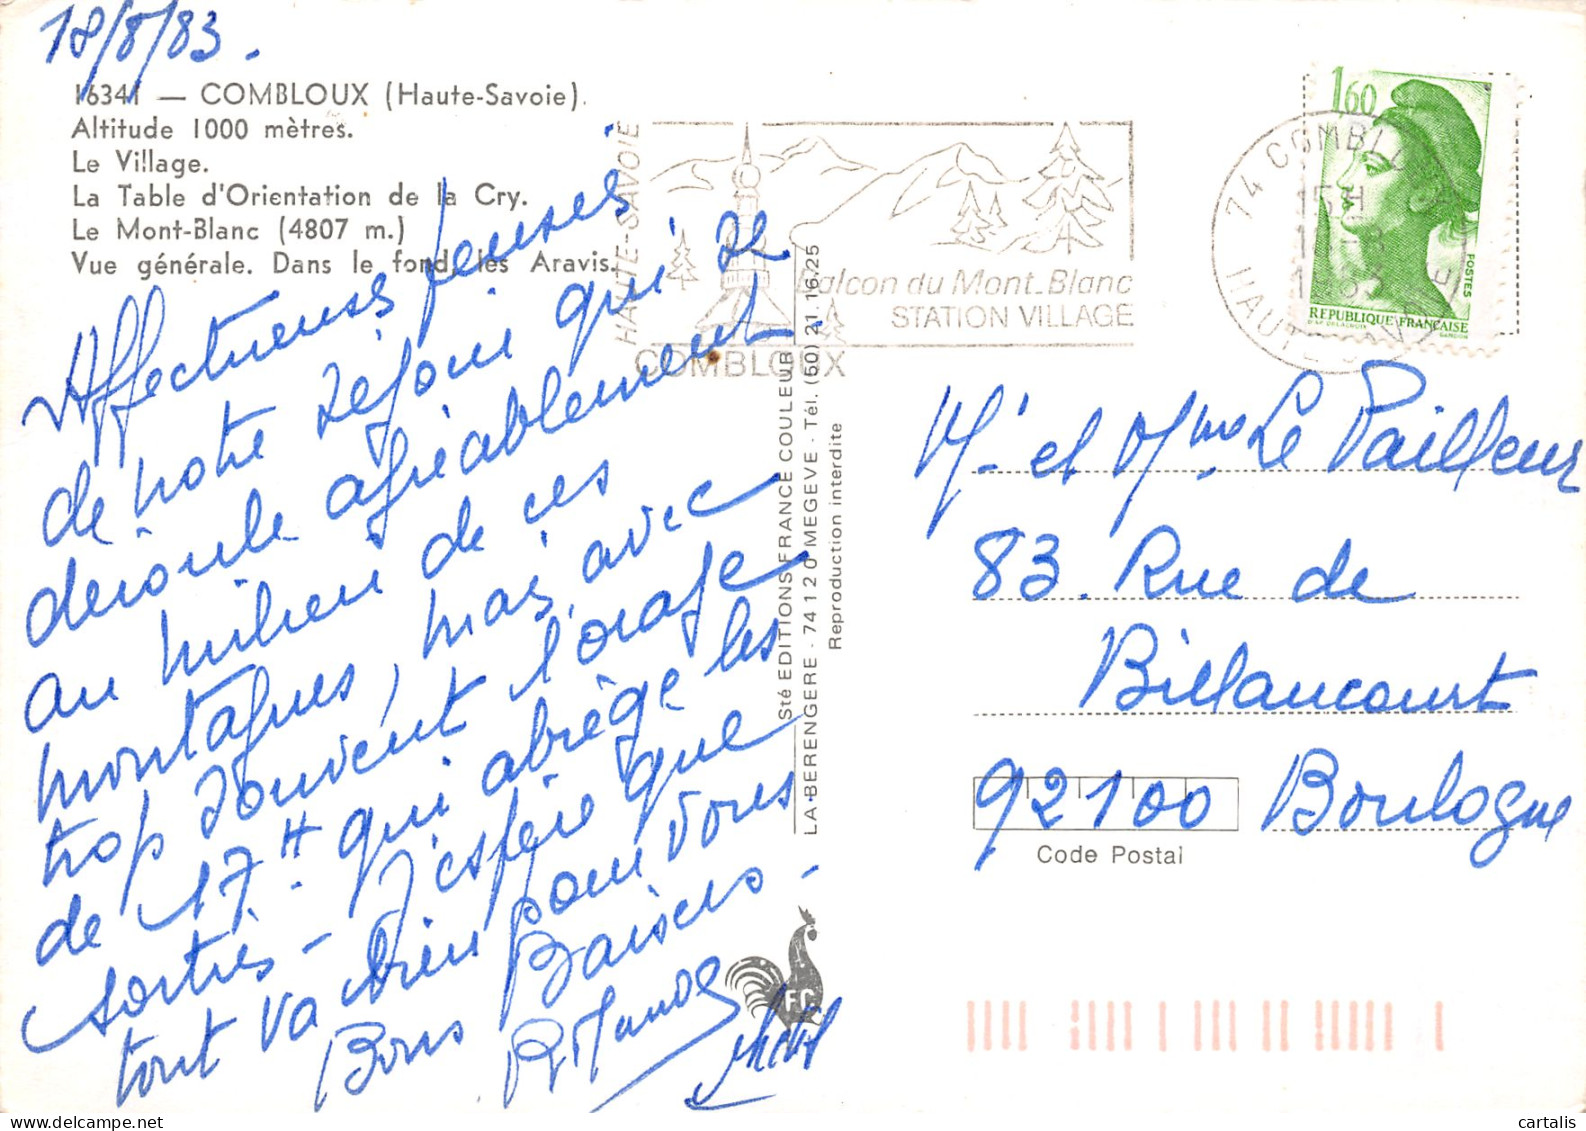 18/8/83.
16341 — COMBLOUX (Haute-Savoie).
Altitude 1000 mètres.
Le Village.
La Table d'Orientation de la Cry.
Le Mont-Blanc (4807 m.)
Vue générale. Dans le fond, les Aravis.
Affectueuses pensées
de notre séjour qui se
déroule agréablement
au milieu de ces
montagnes, mais avec
trop souvent l'orage
de 17H. qui abrège les
sorties - J'espère que
tout va bien pour vous
Bons Baisers -
HAUTE-SAVOIE
COMBLOUX
Balcon du Mont-Blanc
STATION VILLAGE
74 COMBLOUX
15H
1983
HAUTE SAVOIE
1,60
POSTES
REPUBLIQUE FRANÇAISE
GANDON
Sté EDITIONS FRANCE COULEUR
LA BERENGERE - 74120 MEGEVE - Tél. (50) 21 16 25
Reproduction interdite
FC
Mr et Mme Le Pailleur
83. Rue de
Billancourt
92100 Boulogne
Code Postal
cartalis